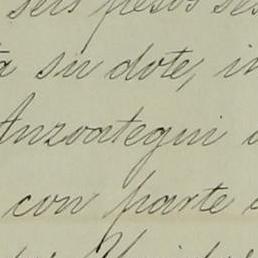 seis pesos ses
ta su dote, in
Anzoategui
con parte